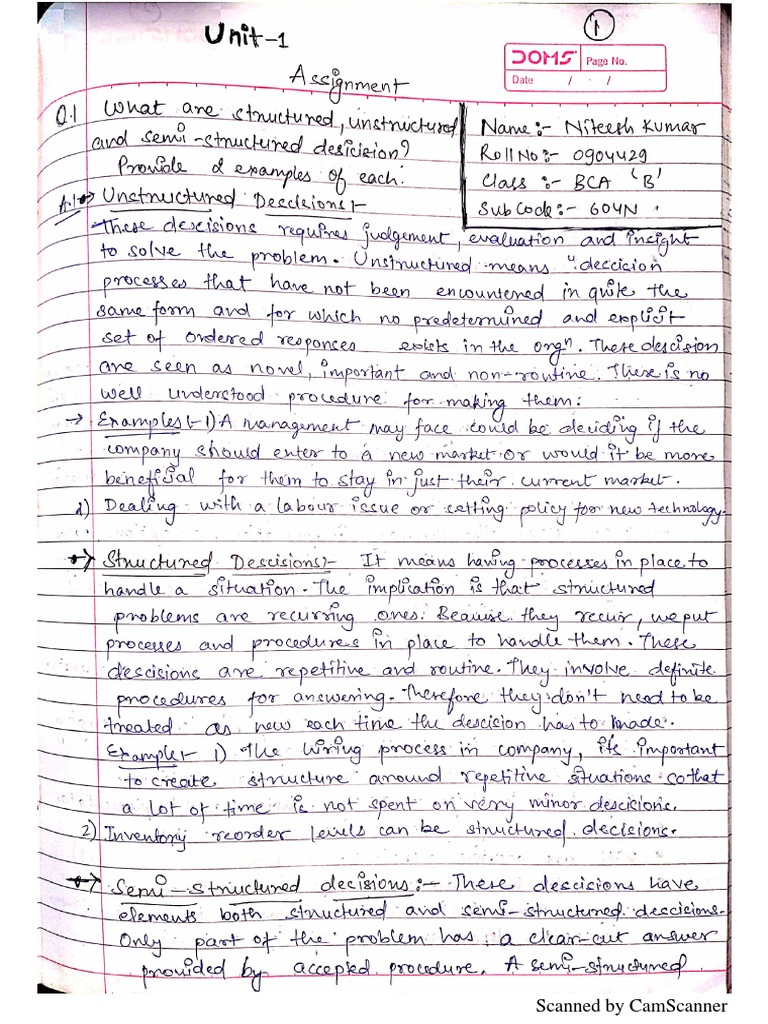 Unit-1
1
DOMS Page No.
Date / /
Assignment
Q.1 What are structured, unstructured
and semi-structured desicision?
Provide 2 examples of each.
Name:- Niteesh Kumar
Roll No:- 0904429
Class:- BCA 'B'
Sub Code:- 604N.
A.1 → Unstructured Deecleions:-
These descisions requires judgement, evaluation and insight
to solve the problem. Unstructured means "descision
processes that have not been encountered in quite the
same form and for which no predetermined and explicit
set of ordered responses exists in the orgn. These descision
are seen as novel, important and non-routine. There is no
well understood procedure for making them:
→ Examples:- 1) A management may face could be deciding if the
company should enter to a new market or would it be more
beneficial for them to stay in just their current market.
2) Dealing with a labour issue or setting policy for new technology.
→ Structured Descisions:- It means having processes in place to
handle a situation. The implication is that structured
problems are recurring ones. Because they recur, we put
processes and procedures in place to handle them. These
descisions are repetitive and routine. They involve definite
procedures for answering. Therefore they don't need to be
treated as new each time the descision has to made.
Example:- 1) The hiring process in company, its important
to create structure around repetitive situations so that
a lot of time is not spent on very minor descisions.
2) Inventory reorder levels can be structured decisions.
→ Semi-structured decisions:- These descisions have
elements both structured and semi-structured descisions.
Only part of the problem has a clear-cut answer
provided by accepted procedure. A semi-structured
Scanned by CamScanner